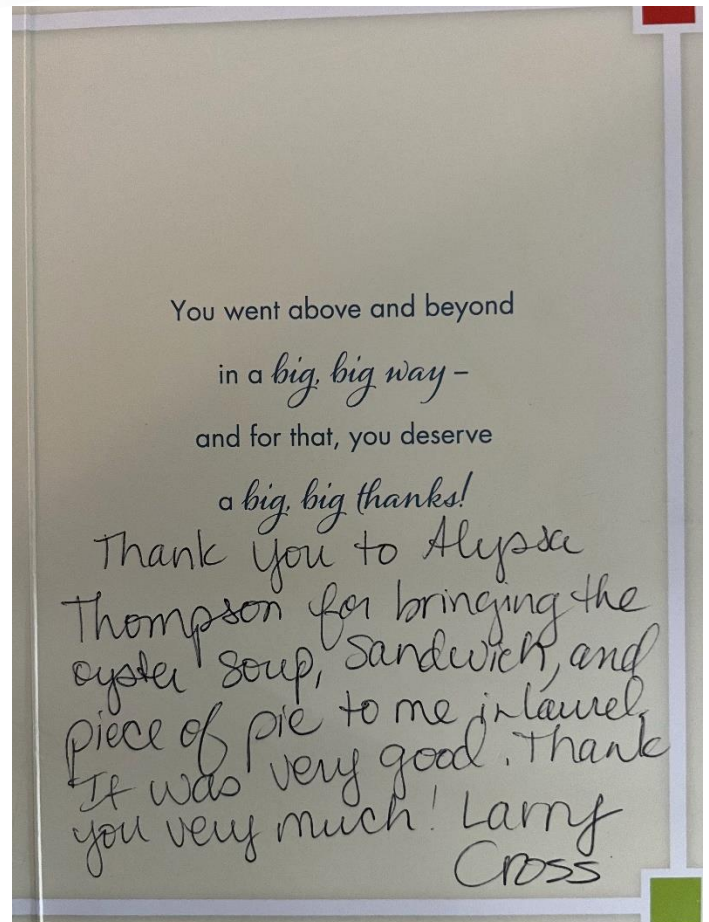 You went above and beyond
in a big, big way –
and for that, you deserve
a big, big thanks!
Thank you to Alyssa
Thompson for bringing the
oyster soup, sandwich, and
piece of pie to me in Laurel.
It was very good. Thank
you very much! Larry
Cross